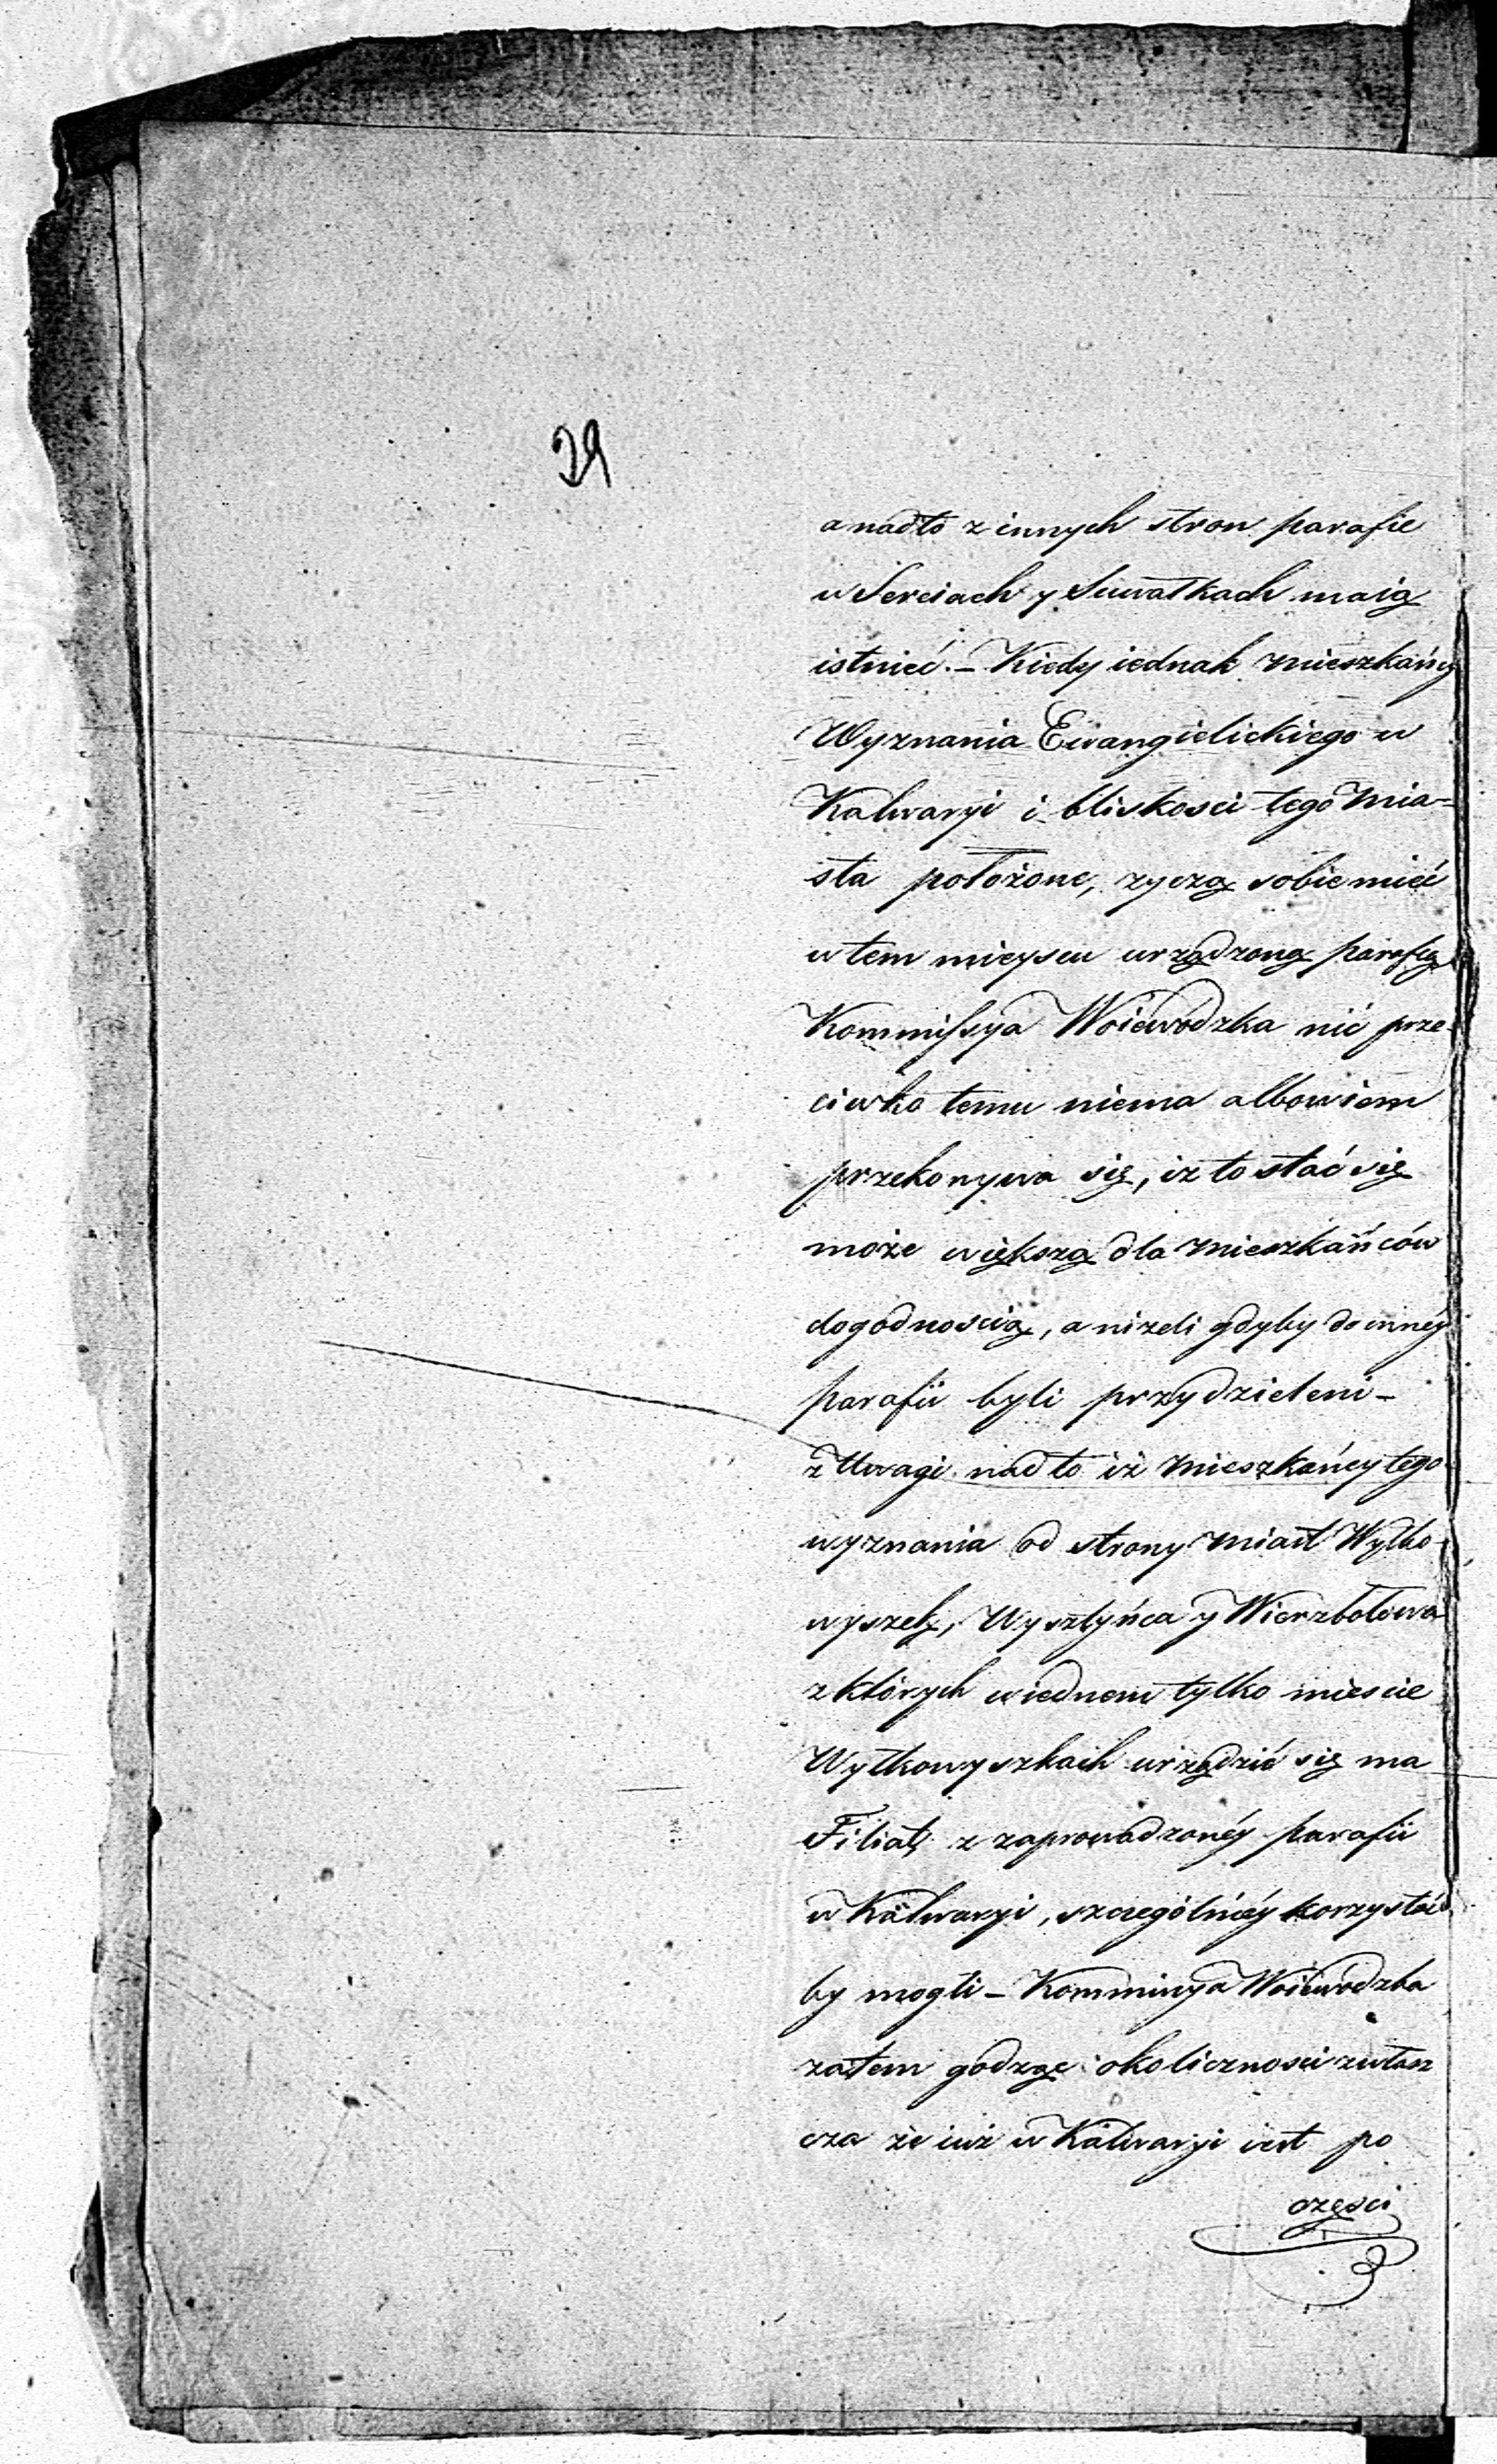 29
a nadto z innych stron parafie
w Serciach y Suwałkach maią
istnieć. – Kiedy iednak mieszkańcy
Wyznania Ewangielickiego w
Kalwaryi i bliskosci tego Mia-
sta położone, zyczą sobie mieć
w tem mieyscu urządzoną parafią
Kommissya Woiewodzka nić prze-
ciwko temu niema albowiem
przekonywa się, iz to stać się
może większą dla mieszkańców
dogodnoscią, a nizeli gdyby do inney
parafii byli przydzieleni –
z Uwagi nadto iż mieszkańcy tego
wyznania od strony miast Wyłko-
wyszek, Wysztyńca y Wierzbołowa
z których w iednem tylko miescie
Wyłkowyszkach urządzić się ma
Filiał, z zaprowadzonéy parafii
w Kalwaryi, szczególniéy korzystać
by mogli – Kommissya Woiewodzka
zatem godząc okolicznosci zwłasz
cza że iuż w Kalwaryi iest po
częsci